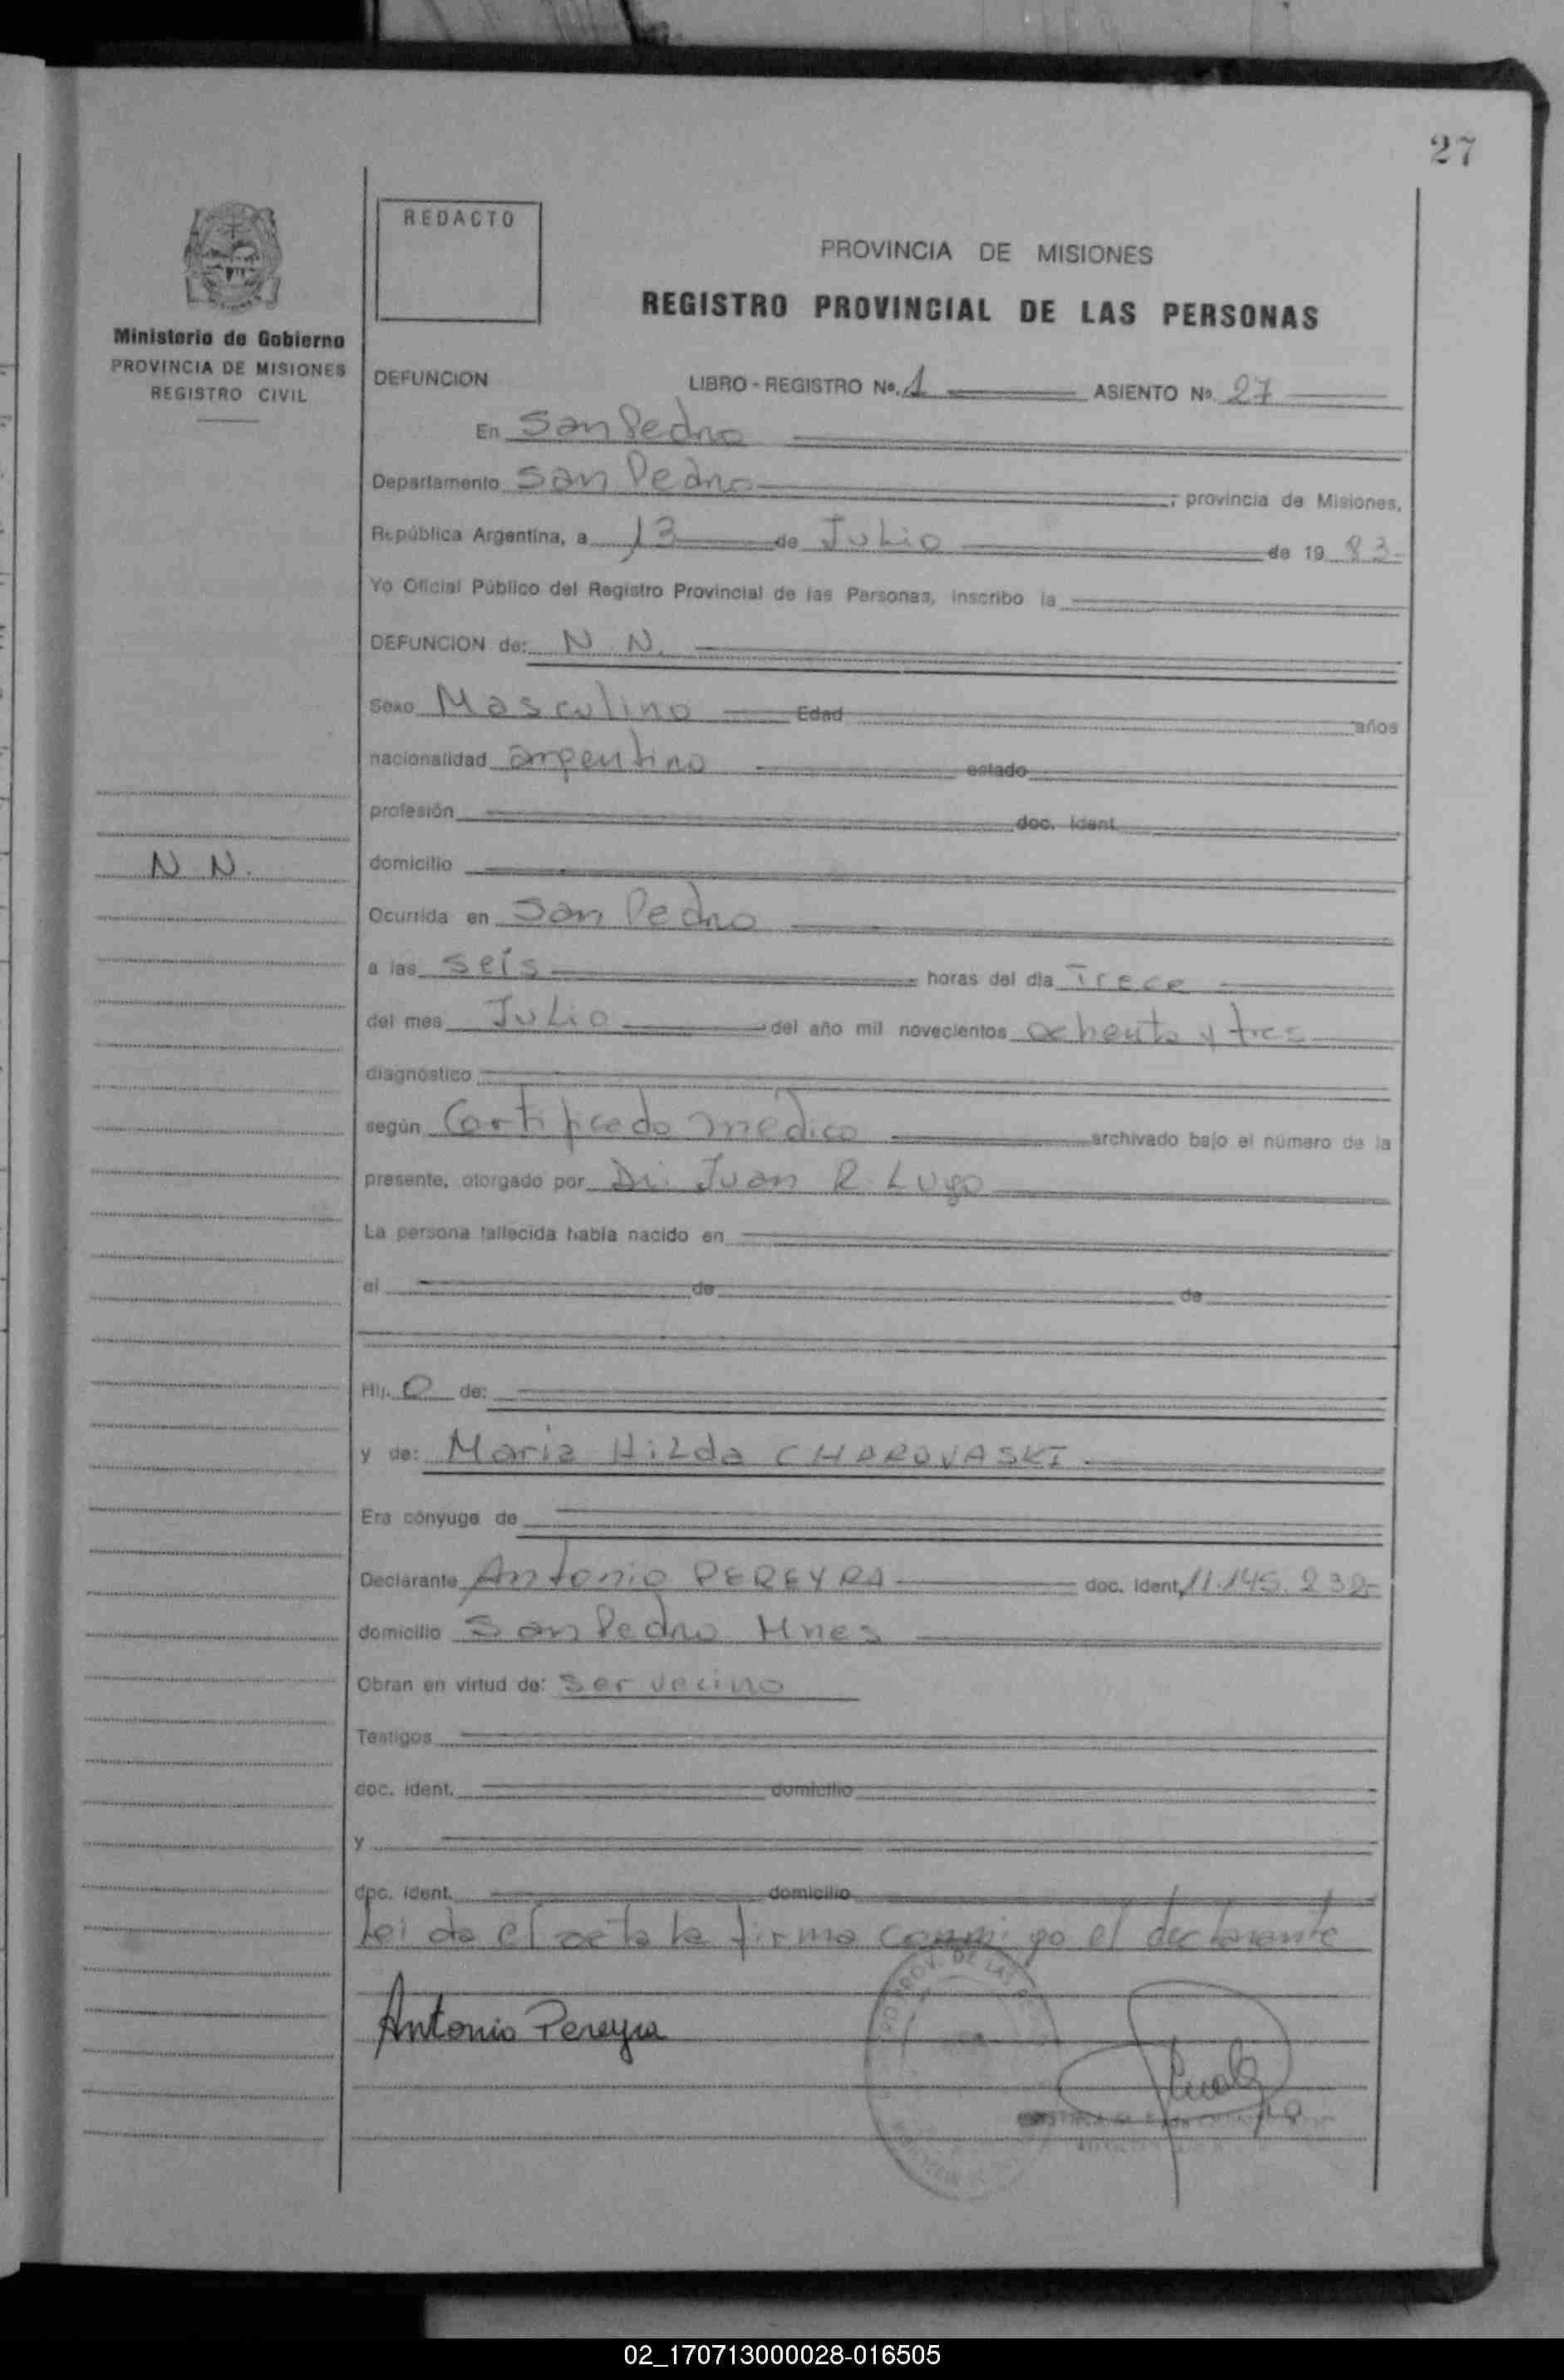 27
REDACTO
PROVINCIA DE MISIONES
REGISTRO PROVINCIAL DE LAS PERSONAS
Ministerio de Gobierno
PROVINCIA DE MISIONES
REGISTRO CIVIL
DEFUNCION LIBRO - REGISTRO No. 1 ASIENTO No. 27
En San Pedro
Departamento San Pedro ; provincia de Misiones,
República Argentina, a 13 de Julio de 19 83
Yo Oficial Público del Registro Provincial de las Personas, inscribo la
DEFUNCION de: N. N.
Sexo Masculino Edad años
nacionalidad argentino estado
profesión doc. ident.
N N.
domicilio
Ocurrida en San Pedro
a las seis horas del día Trece
del mes Julio del año mil novecientos ochenta y tres
diagnóstico
según Certificado médico archivado bajo el número de la
presente, otorgado por Dr. Juan R. Lugo
La persona fallecida había nacido en
el de de
Hij o de:
y de: Maria Hilda CHAROVASKI
Era cónyuge de
Declarante Antonio PEREYRA doc. ident. 11.145.232
domicilio San Pedro Mnes
Obran en virtud de: ser vecino
Testigos
doc. ident. domicilio
y
doc. ident. domicilio
Leida el acta la firma conmigo el declarante
PROV. DE LAS
Antonio Pereyra
02_170713000028-016505